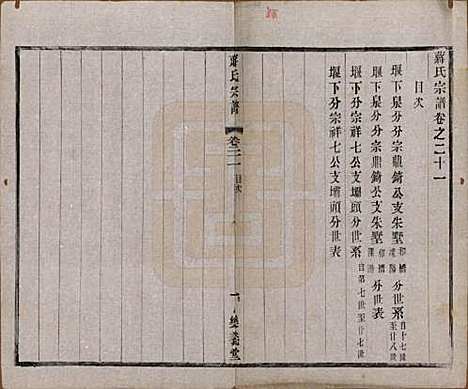 蔣氏宗譜卷之二十一
目次
堰下泉分分宗鼎錡公支朱墅 分世系 自十七世至廿八世
堰下泉分分宗鼎錡公支朱墅 分世表
堰下分分宗祥七公支壩頭分世系 自第七世至廿七世
堰下分分宗祥七公支壩頭分世表
蔣氏宗譜
卷二一
目次
一